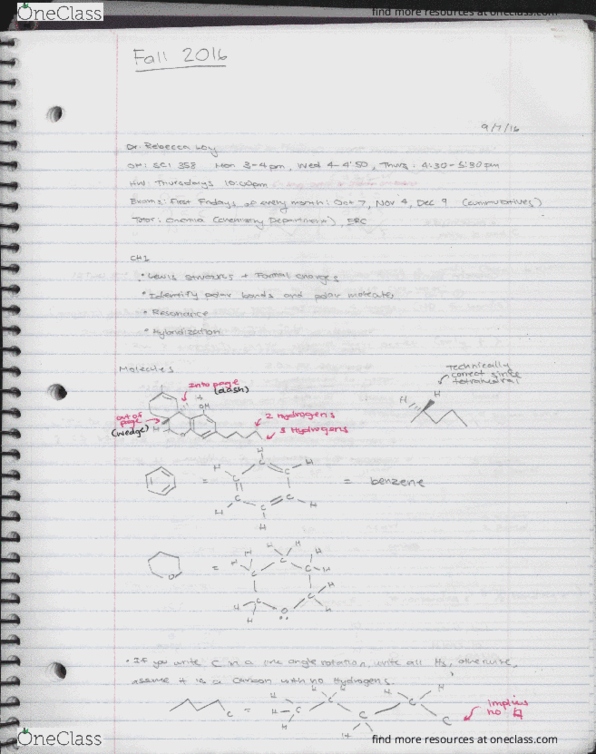 OneClass
find more resources at oneclass.com
Fall 2016
9/7/16
Dr. Rebecca Loy
SCI 358 Mon 3-4pm, Wed 4-4:50, Thurs: 4:30-5:30pm
HW: Thursdays 10:00pm
Exams: First Fridays of every month: Oct 7, Nov 4, Dec 9 (cumulatives)
Tutor: (Chemistry Department),
CH1
• Lewis structures + Formal charges
• Identify polar bonds and polar molecules
• Resonance
• Hybridization
Molecules
technically
correct since
tetrahedral
into page
(dash)
H
H
OH
out of
page
(wedge)
H
O
2 hydrogens
3 Hydrogens
= = benzene
O = O
• If you write C in a line angle notation, write all Hs, otherwise,
assume it is a carbon with no hydrogens.
C =
implies
no H
OneClass
find more resources at oneclass.com